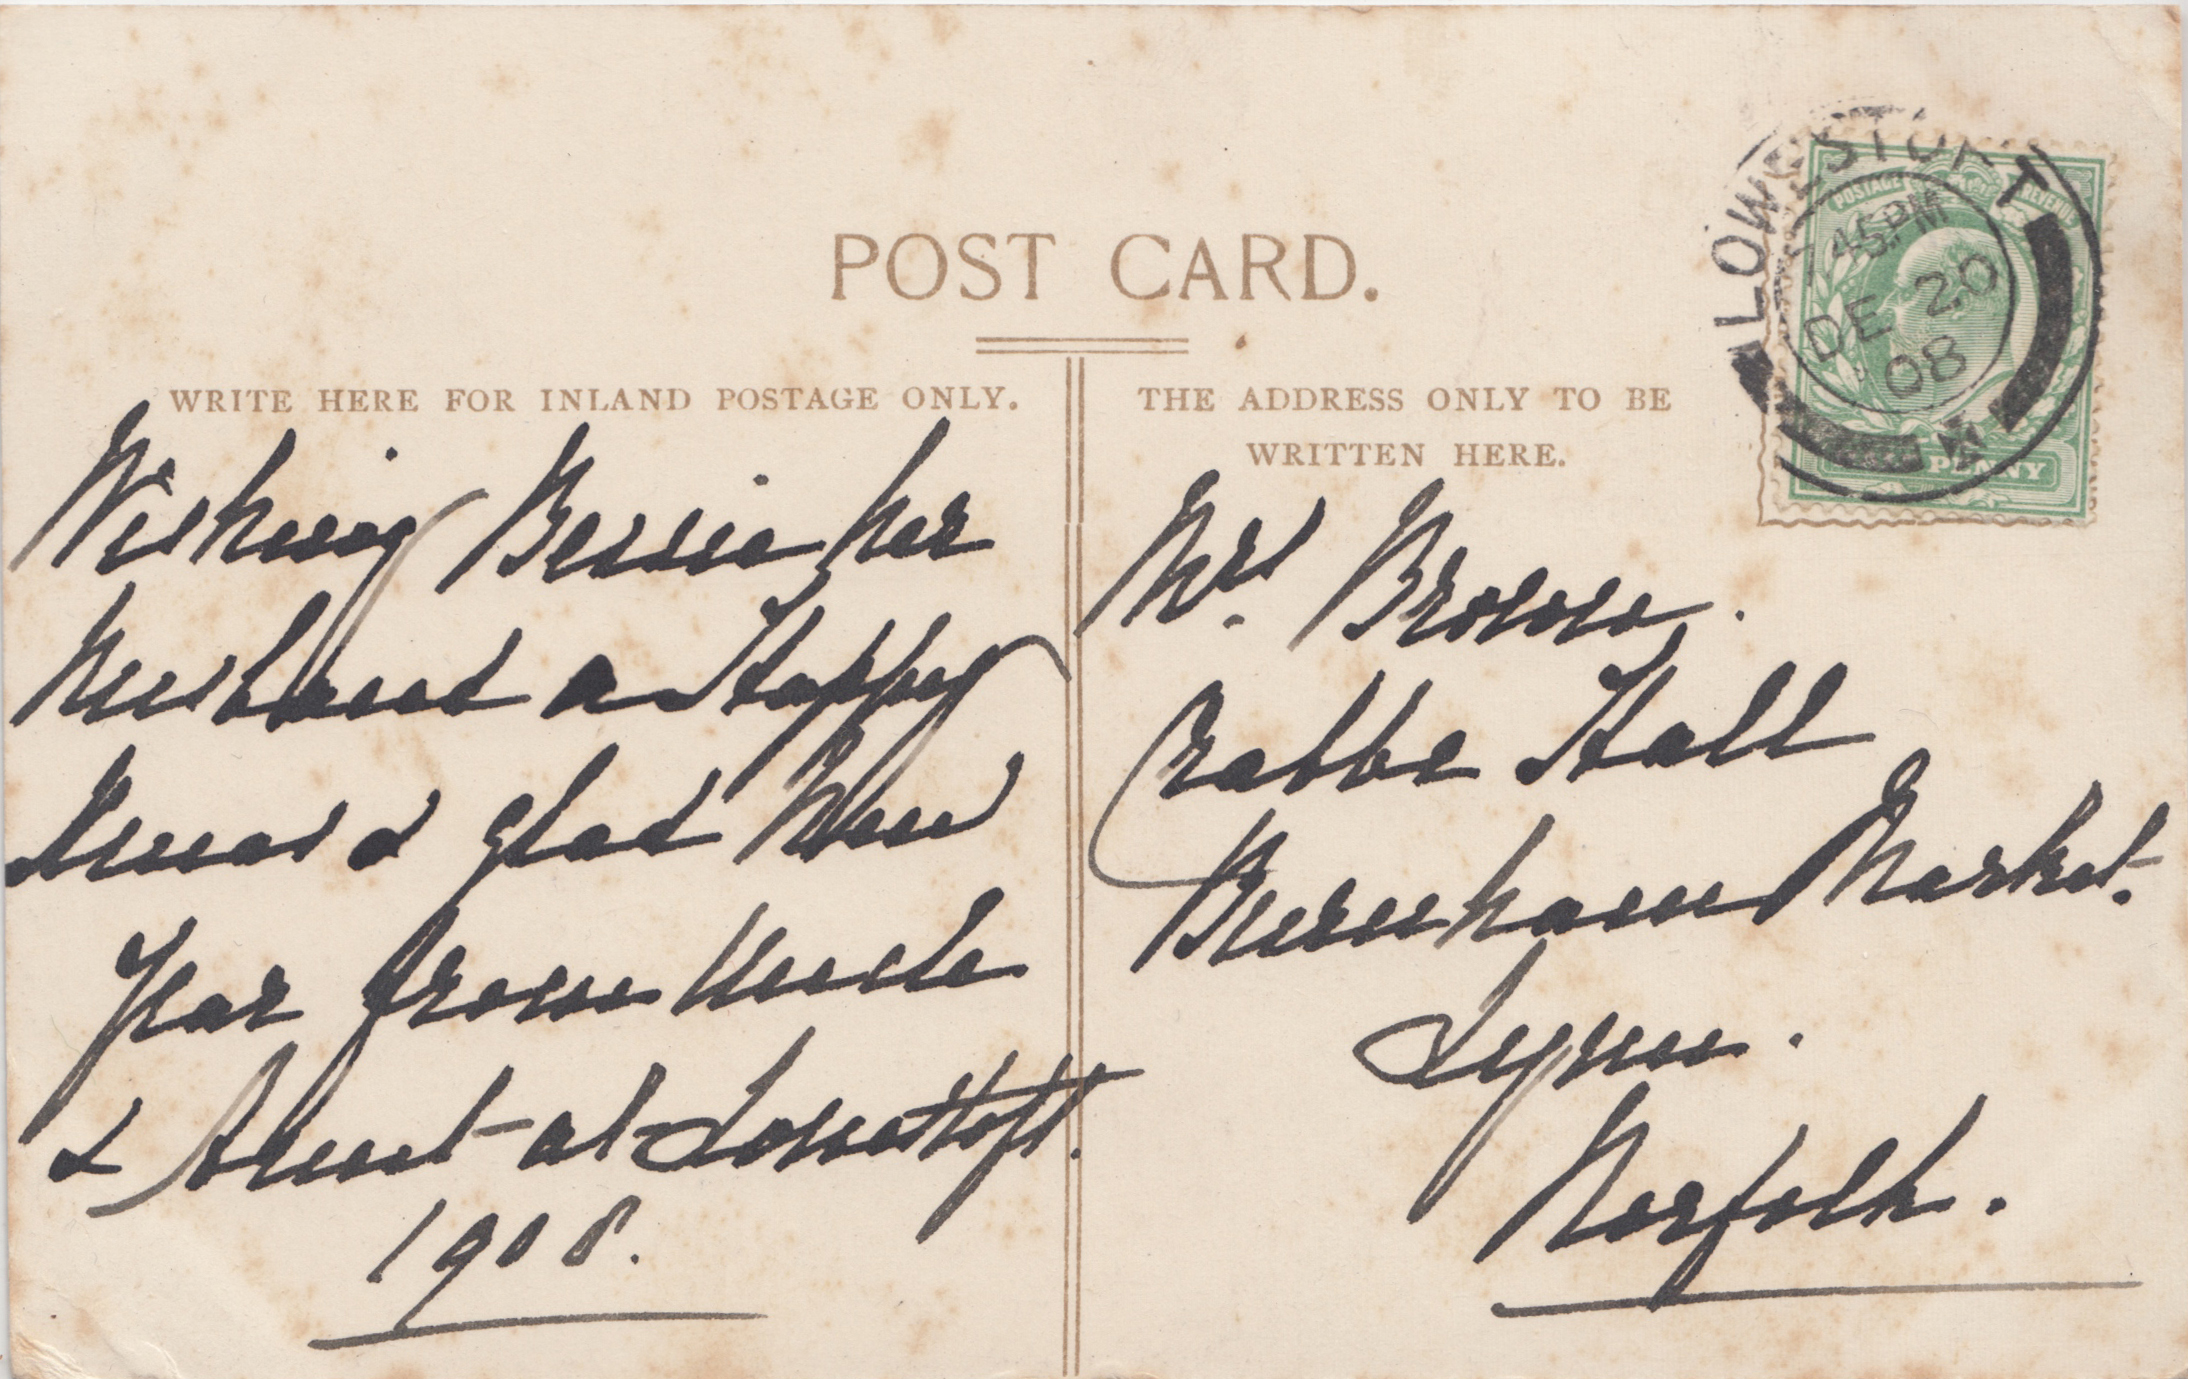 POST CARD.
WRITE HERE FOR INLAND POSTAGE ONLY.
Wishing Bessie her
Husband a Happy
Xmas & glad New
Year from Uncle
& Aunt at Lowestoft.
1908.
THE ADDRESS ONLY TO BE
WRITTEN HERE.
Mrs. Browne.
Crabbe Hall
Burnham Market.
Lynn.
Norfolk.
LOWESTOFT
45 PM
DE 20
08
POSTAGE REVENUE
PENNY